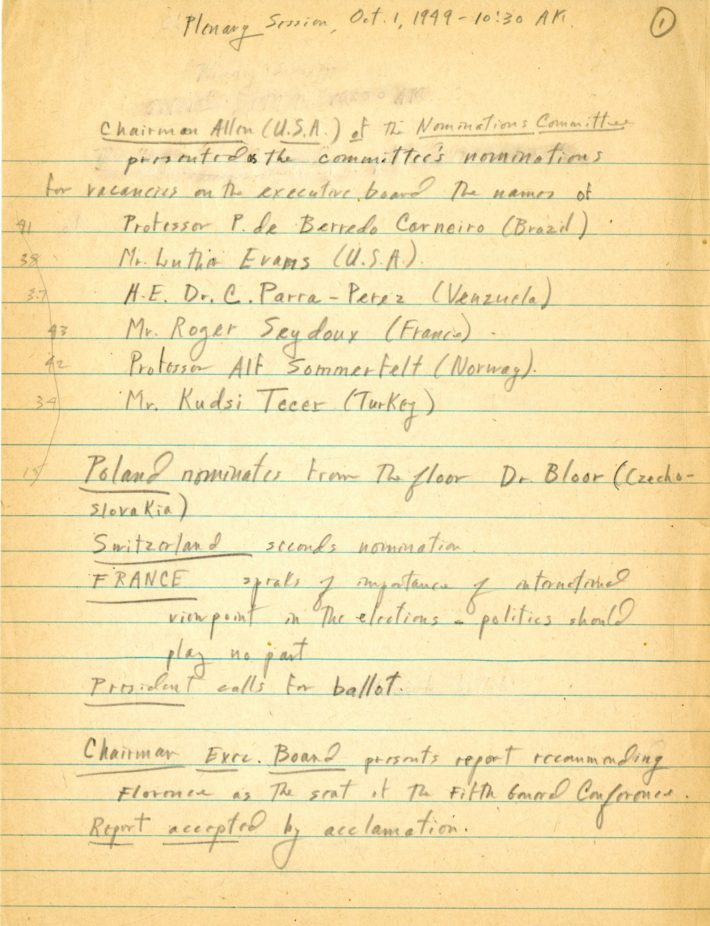 Plenary Session, Oct. 1, 1949 - 10:30 AM. 1
Chairman Allen (U.S.A.) of the Nominations Committee
presented as the committee's nominations
for vacancies on the executive board the names of
41 Professor P. de Berredo Carneiro (Brazil)
38 Mr. Luther Evans (U.S.A.).
37 H.E. Dr. C. Parra-Perez (Venezuela)
43 Mr. Roger Seydoux (France).
42 Professor Alf Sommerfelt (Norway).
34 Mr. Kudsi Tecer (Turkey)
15 Poland nominates from the floor Dr. Bloor (Czecho-
slovakia)
Switzerland seconds nomination
FRANCE speaks of importance of international
viewpoint in the elections - politics should
play no part
President calls for ballot.
Chairman Exec. Board presents report recommending
Florence as the seat of the Fifth General Conference.
Report accepted by acclamation.